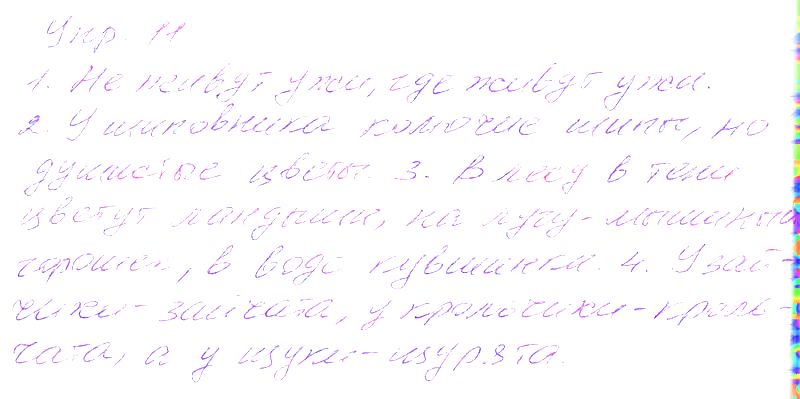 Упр. 11
1. Не живут ужи, где живут ужи.
2. У шиповника колючие шипы, но
душистые цветы. 3. В лесу в тени
цветут ландыши, на лугу - мышиный
горошек, в воде кувшинки. 4. У зай-
чихи - зайчата, у крольчихи - кроль-
чата, а у щуки - щурята.